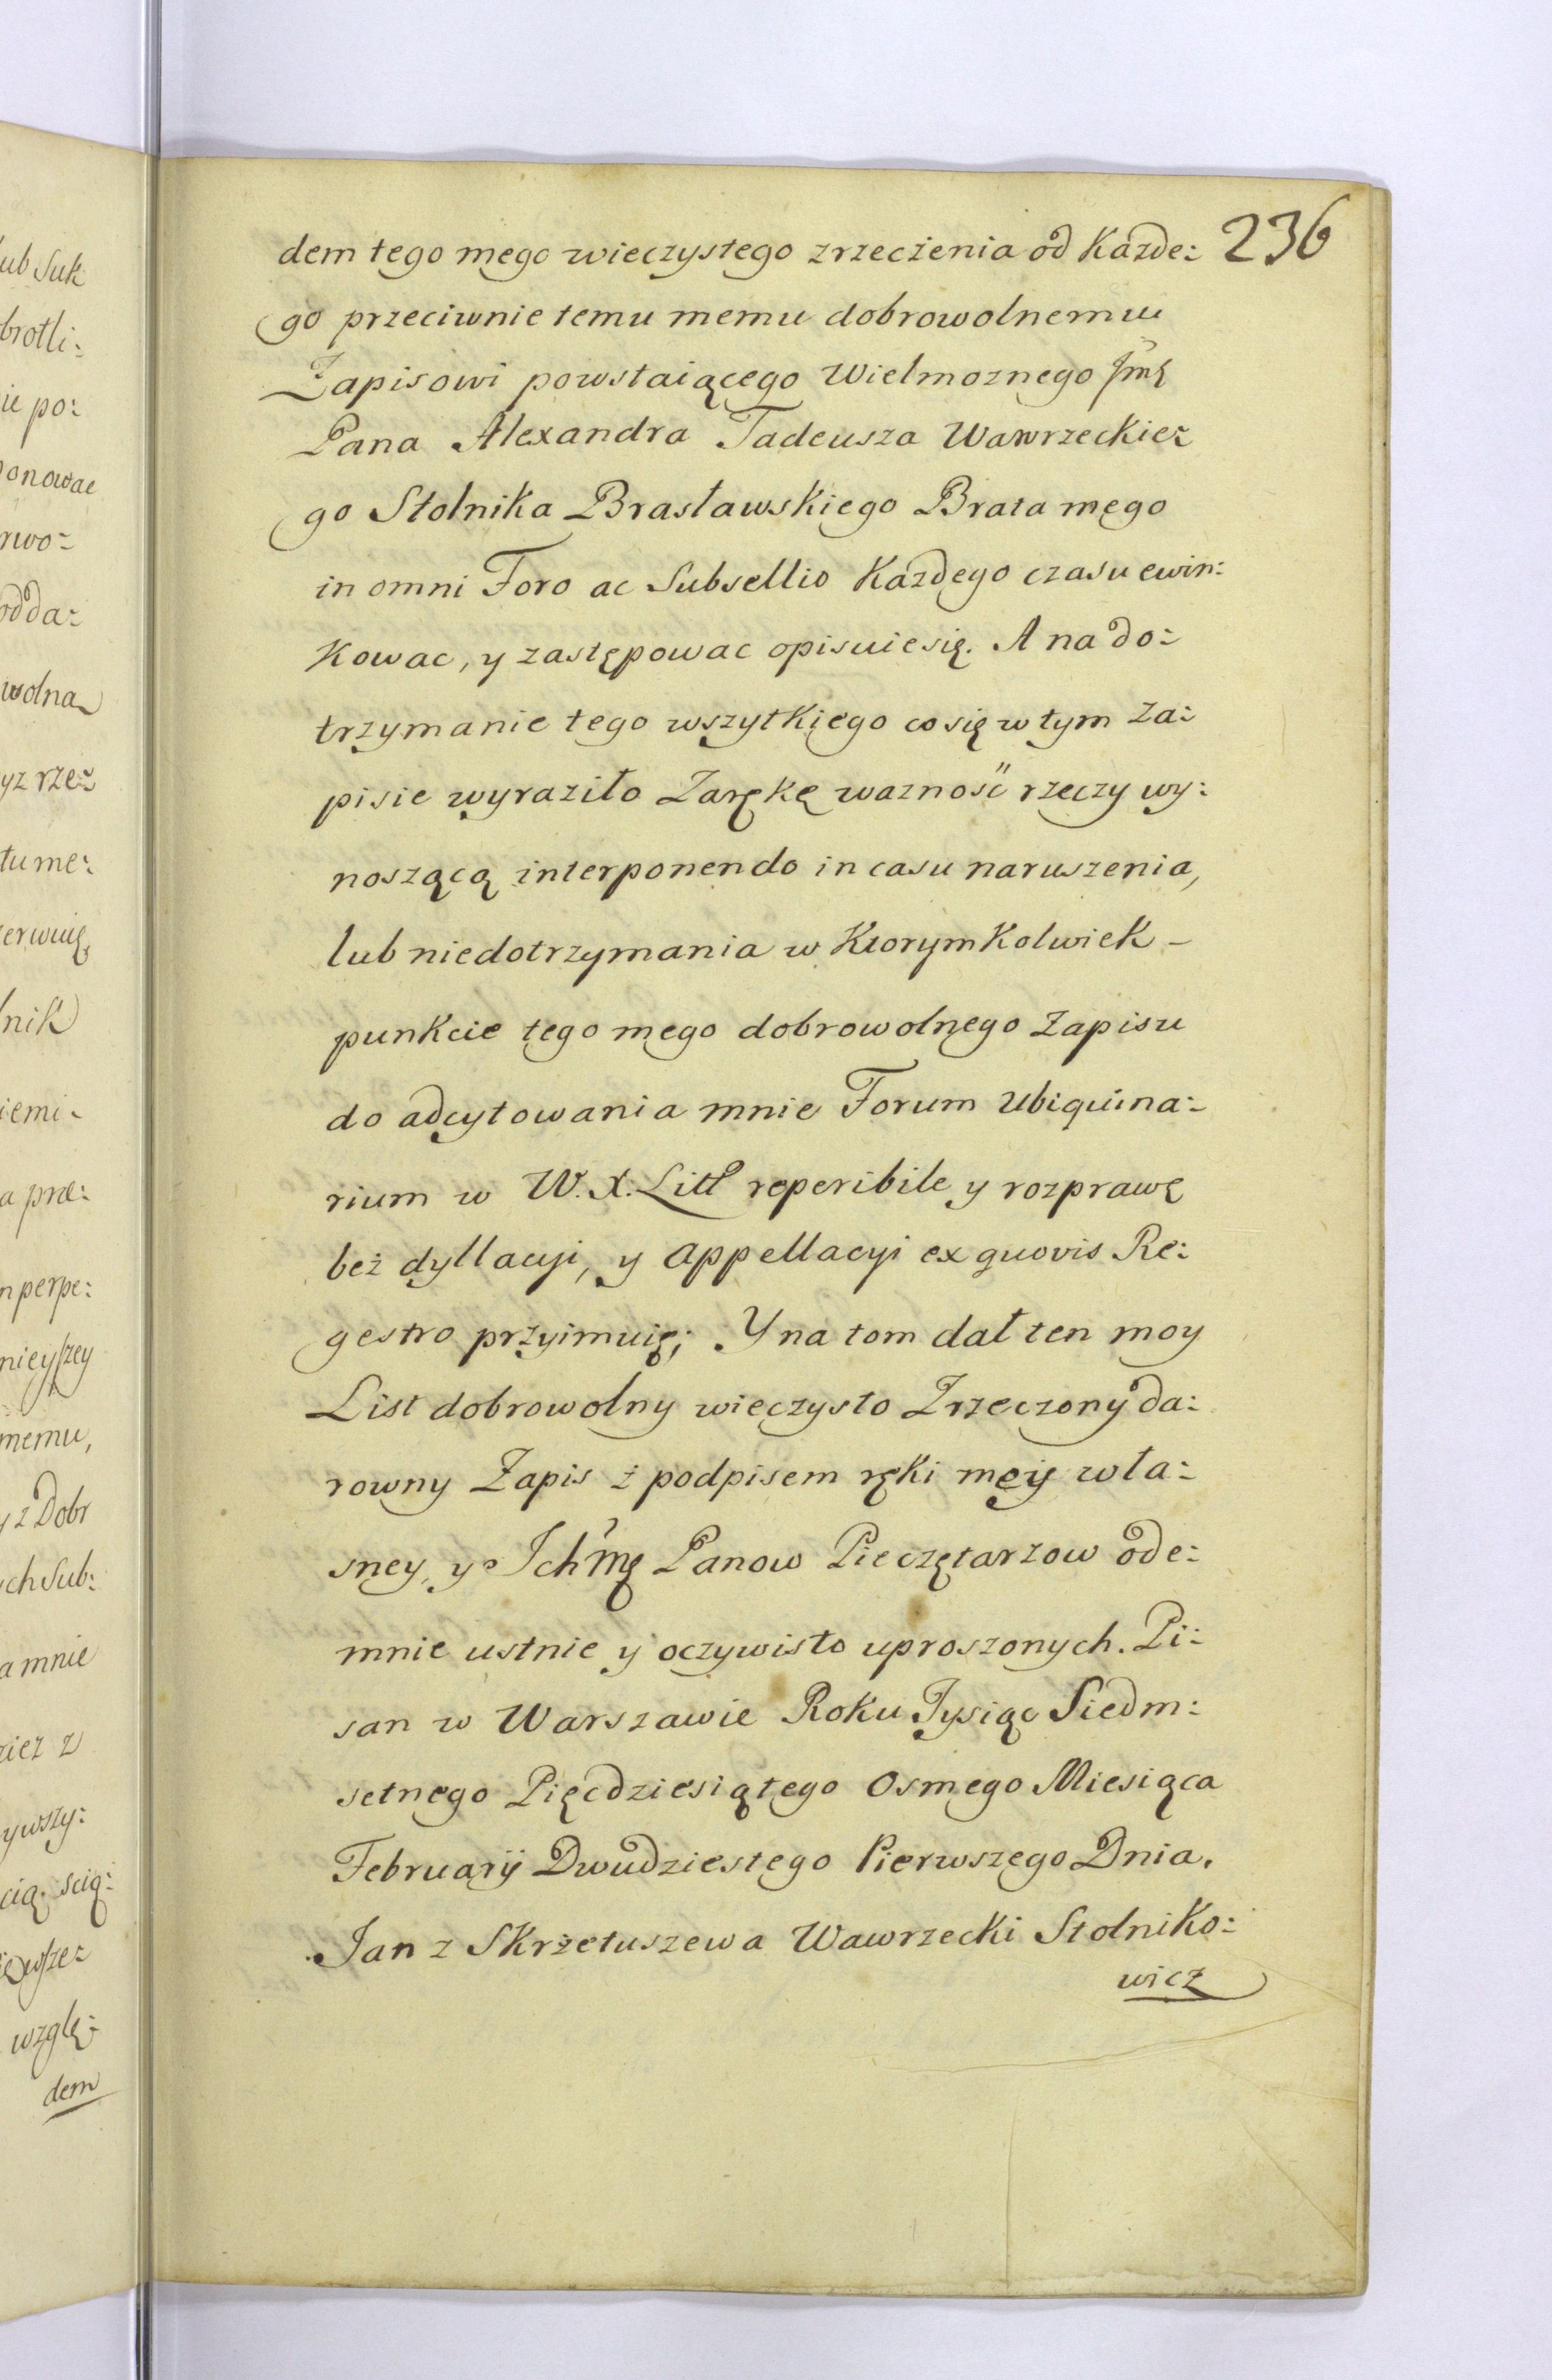 dem tego mego wieczystego zrzeczenia od Kazde: 236
go przeciwnie temu memu dobrowolnemu
Zapisowi powstaiącego Wielmoznego Jmę
Pana Alexandra Tadeusza Wawrzeckie:
go Stolnika Brasławskiego Brata mego
in omni Foro ac Subsellio Kazdego czasu ewin:
Kowac, y zastępowac opisuie się. A na do:
trzymanie tego wszytkiego co się w tym Za:
pisie wyraziło Zarękę waznosc rzeczy wy:
noszącą interponendo in casu naruszenia,
lub niedotrzymania w Ktorym Kolwiek –
punkcie tego mego dobrowolnego Zapisu
do adcytowania mnie Forum Ubiquina:
rium w W. X. Litt reperibile y rozprawę
beż dyllacyi, y appellacyi ex quovis Re:
gestro przyimuię; Y na tom dał ten moy
List dobrowolny wieczysto Zrzeczony da:
rowny Zapis ż podpisem ręki mey wła:
sney, y Ichmę Panow Pieczętarzow ode:
mnie ustnie y oczywisto uproszonych. Pi:
san w Warszawie Roku Tysiąc Siedm:
setnego Pięcdziesiątego Osmego Miesiąca
Februarÿ Dwudziestego Pierwszego Dnia.
Jan z Skrżetuszewa Wawrzecki Stolniko:
wicz
ub Suk
brotli:
ie po:
onowac
rwo:
odda:
wolna
yz rze:
tu me:
erwuię,
lnik
iemi:
a præ:
n perpe:
nieyszey
memu,
y z Dobr
ych Sub:
a mnie
niez z
ywszy:
cią. scią:
wzglę:
dem